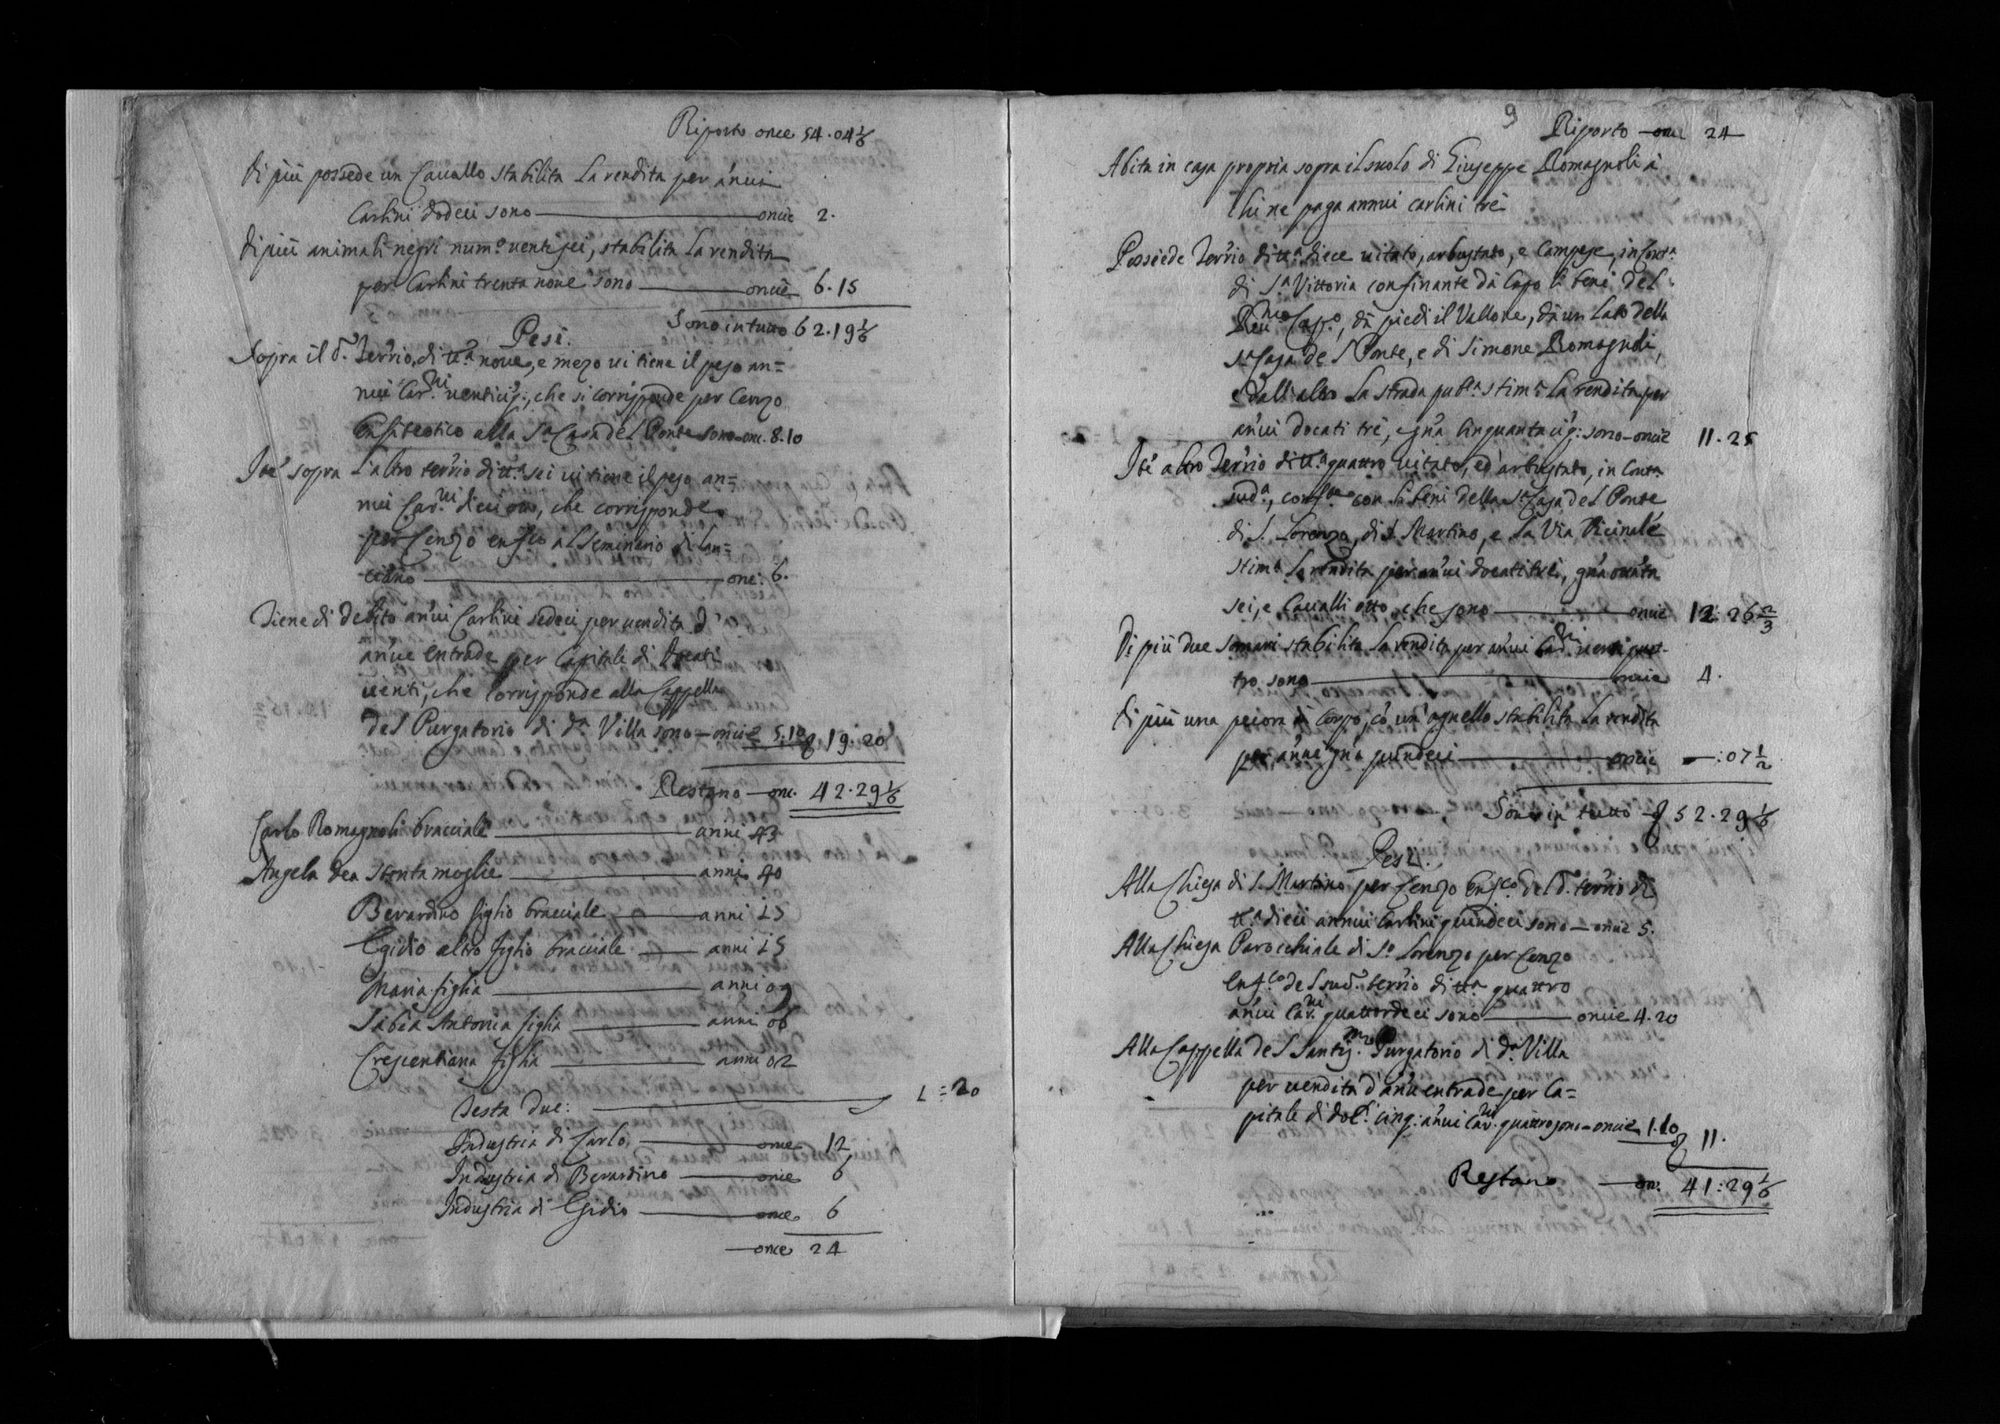 Riporto once 54.04 1/6
Di più possede un Cavallo stabilita la rendita per annui
Carlini dodeci sono — oncie 2.
Di più animali negri num.o ventisei, stabilita la rendita
per Carlini trenta nove sono — oncie 6.15
Sono in tutto 62.19 1/6
Pesi.
Sopra il d.o Terr'io di tt.a nove, e mezo vi tiene il peso an=
nui Car.ni venticiq:, che si corrisponde per Cenzo
Enfiteotico alla S.a Casa del Ponte sono onc. 8.10
Ite' sopra l'altro terr'io di tt.a sei vi tiene il peso an=
nui Car.ni dieciotto, che corrisponde
per Cenzo enf.co al Seminario di Lan=
ciano — onc: 6.
Tiene di debito an'ui Carlini sedeci per vendita d'
an'ue entrade per Capitale di Docati
venti, che corrisponde alla Cappella
del Purgatorio di d.a Villa sono — oncie 5.10 19.20
Restano — onc. 42.29 1/6
Carlo Romagnoli bracciale — anni 43
Angela dea Stonta moglie — anni 40
Berardino figlio bracciale — anni 15
Egidio altro figlio bracciale — anni 15
Maria figlia — anni 09
Sabia Antonia figlia — anni 06
Crescentiana figlia — anni 02
Testa due: — L=20
Industria di Carlo — oncie 12
Industria di Berardino — oncie 6
Industria di Egidio — oncie 6
— oncie 24
9
Riporto — onc 24
Abita in casa propria sopra il suolo di Giuseppe Romagnoli à
chi ne paga annui carlini trè
Possiede Terr'io di tt.a diece vitato, arbustato, e Campese, in Cont.a
di S.a Vittoria confinante dà Capo li beni del
Reu.mo Cap.o, dà piedi il Vallone, dà un lato della
S.a Casa del Ponte, e di Simone Romagnoli,
e dall'altro la strada pub.a stim.a la rendita per
an'ui docati tre, e gr'a Cinquanta cíq: sono — oncie 11.25
Ite' altro Terr'io di tt.a quattro vitato, ed arbustato, in Cont.a
sud.a, conf.te con li beni della S.a Casa del Ponte
di S. Lorenzo, di S. Martino, e la Via Vicinale
stim.a la rendita per an'ui docati tre, gr'a otta'ta
sei, e Cavalli otto che sono — oncie 12:26 2/3
Di più due Somari stabilita la rendita per an'ui Car.ni venti quat=
tro sono — oncie 4.
Di più una pecora di Corpo, co' un' agnello stabilita la rendita
per an'ue gr'a quindeci — oncie —:07 1/2
Sono in tutto 52.29 1/6
Pesi.
Alla Chiesa di S. Martino per Cenzo Enf.co del d.o terr'io di
tt.a dieci annui Carlini quindeci sono — oncie 5.
Alla Chiesa Parocchiale di S.o Lorenzo per Cenzo
enf.co del sud.o terr'io di tt.a quattro
an'ui Car.ni quattordeci sono — oncie 4.20
Alla Cappella del Santis.mo Purgatorio di d.a Villa
per vendita d'an'ue entrade per Ca=
pitale di doc.i cinq: an'ui Car.ni quattro sono — oncie 1.10 11.
Restano — on: 41:29 1/6